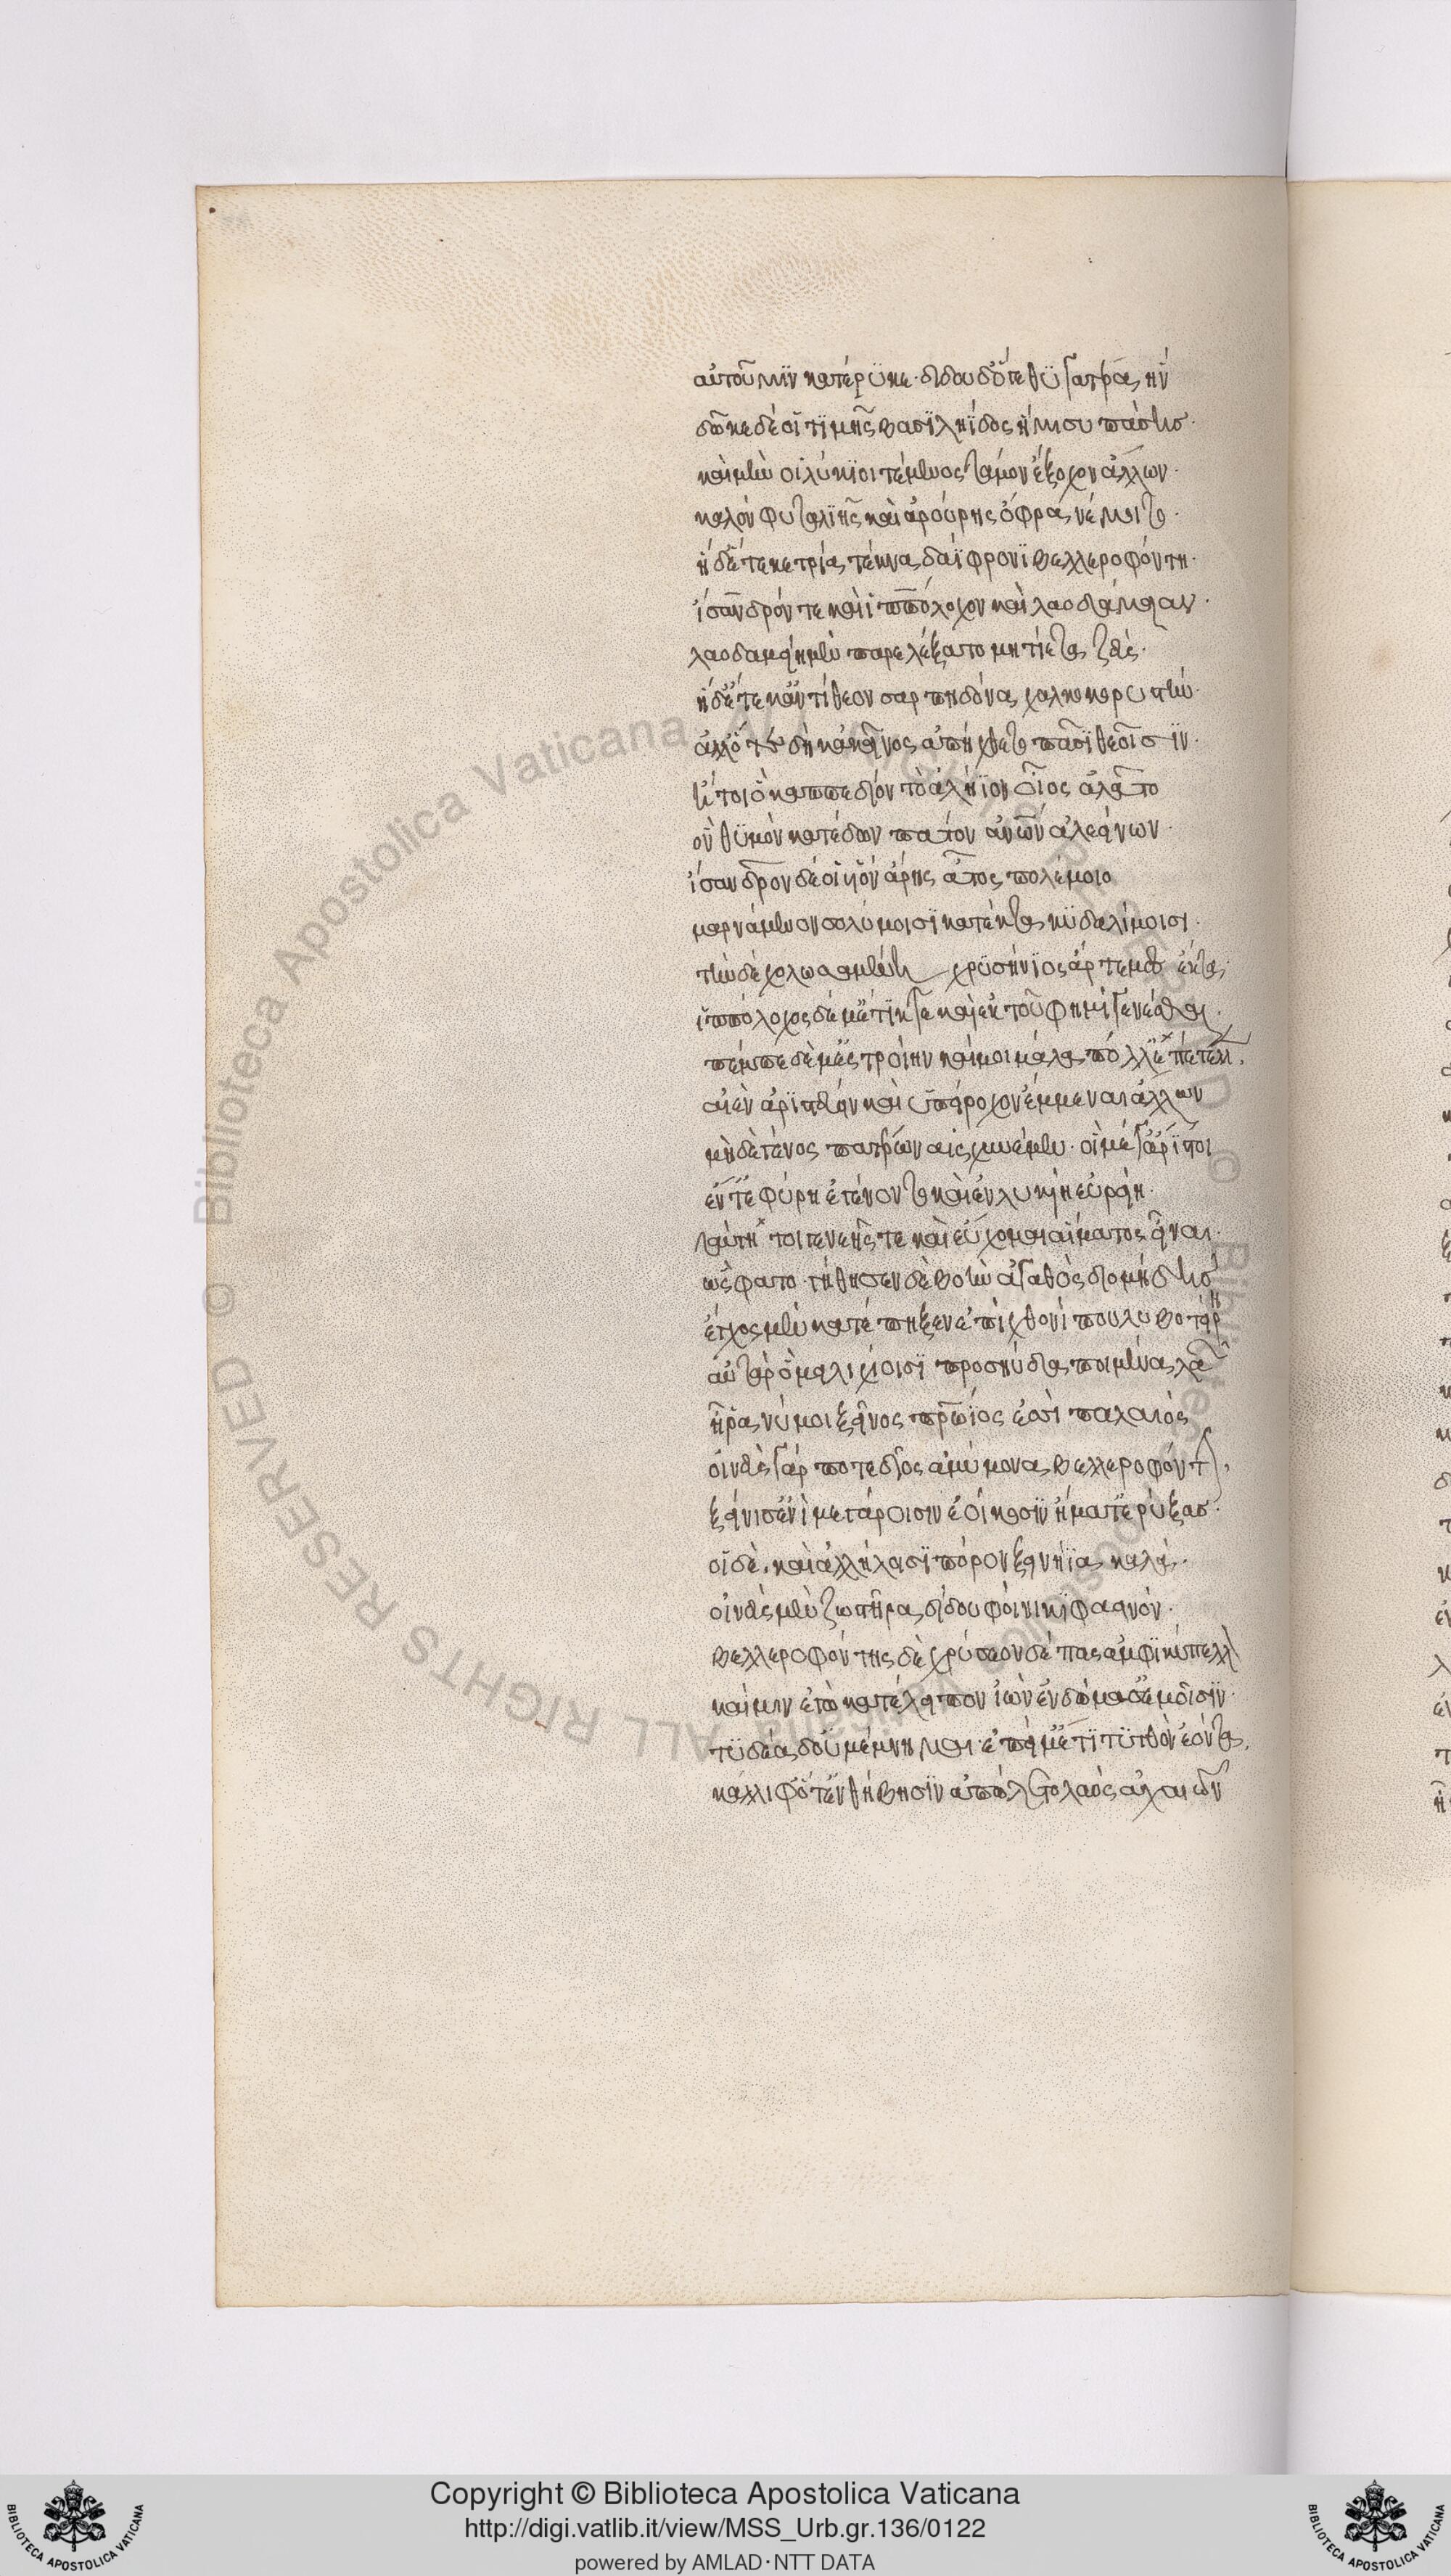 αὐτοῦ μϊν κατέρϋκε· δίδου δ' ὅτε θϋγατέρα ἥν
δῶκε δέ οἱ τϊμῆς βασϊληΐδος ἥμισυ πάσησ·
καὶ μὴν οἱ λύκϊοι τέμενος τάμον ἔξοχον ἄλλων·
καλὸν φυταλϊῆς καὶ ἀρούρης ὄφρα νέμοιτο·
ἡ δ' ἔτεκε τρία τέκνα δαΐφρονϊ βελλεροφόντη·
ἴσανδρόν τε καὶ ἱππόλοχον καὶ λαοδάμειαν·
λαοδαμείη μὲν παρελέξατο μητίετα ζεὺς·
ἡ δ' ἔτεκ' ἀντίθεον σαρπηδόνα χαλκοκορυστήν·
ἀλλ' ὅτε δὴ κἀκεῖνος ἀπήχθετο πᾶσϊ θεοῖσϊν·
ἤτοι ὁ καππεδίον τὸ ἀλήϊον οἶος ἀλᾶτο
ὃν θϋμὸν κατέδων πάτον ἀνθρώπων ἀλεείνων·
ἴσανδρον δέ οἱ υἱὸν ἄρης ἆτος πολέμοιο
μαρνάμενον σολύμοισϊ κατέκτα κϋδαλίμοισι·
τὴν δὲ χολωσαμένη χρϋσήνϊος ἄρτεμις ἔκτα·
ἱππόλοχος δέ μ' ἔτϊκτε καὶ ἐκ τοῦ φημὶ γενέσθαι·
πέμπε δέ μ' ἐς τροίην καί μοι μάλα πόλλ' ἐπέτελλεν·
αἰὲν ἀρϊστεύειν καὶ ὑπείροχον ἔμμεναι ἄλλων
μηδὲ γένος πατέρων αἰσχυνέμεν· οἳ μέγ' ἄρϊστοι
ἔν τ' ἐφύρη ἐγένοντο καὶ ἐν λυκίη εὐρείη·
ταύτης τοι γενεῆς τε καὶ εὔχομαι αἵματος εἶναι·
ὣς φατο γήθησεν δὲ βοὴν ἀγαθὸς διομήδησ
ἔγχος μὲν κατέπηξεν ἐπὶ χθονὶ πουλυβοτείρη
αὐτὰρ ὁ μειλιχίοισϊ προσηύδα ποιμένα λαῶν
ἦ ῥά νύ μοι ξεῖνος πατρώϊος ἐσσὶ παλαιός
οἰνεὺς γάρ ποτε δῖος ἀμύμονα βελλεροφόντην
ξείνισ' ἐνὶ μεγάροισιν ἐείκοσϊν ἤματ' ἐρύξασ·
οἱ δὲ, καὶ ἀλλήλοισϊ πόρον ξεινήϊα καλά·
οἰνεὺς μὲν ζωστῆρα δίδου φοίνικϊ φαεινόν·
βελλεροφόντης δὲ χρύσεον δέπας ἀμφϊκύπελλον
καί μιν ἐγὼ κατέλειπον ἰὼν ἐν δώμασ' ἐμοῖσϊν·
τϋδέα δ' οὐ μέμνημαι· ἐπεί μ' ἔτϊ τϋτθὸν ἐόντα
κάλλιφ' ὅτ' ἐν θήβησϊν ἀπώλετο λαὸς ἀχαιῶν
Copyright © Biblioteca Apostolica Vaticana
http://digi.vatlib.it/view/MSS_Urb.gr.136/0122
powered by AMLAD·NTT DATA